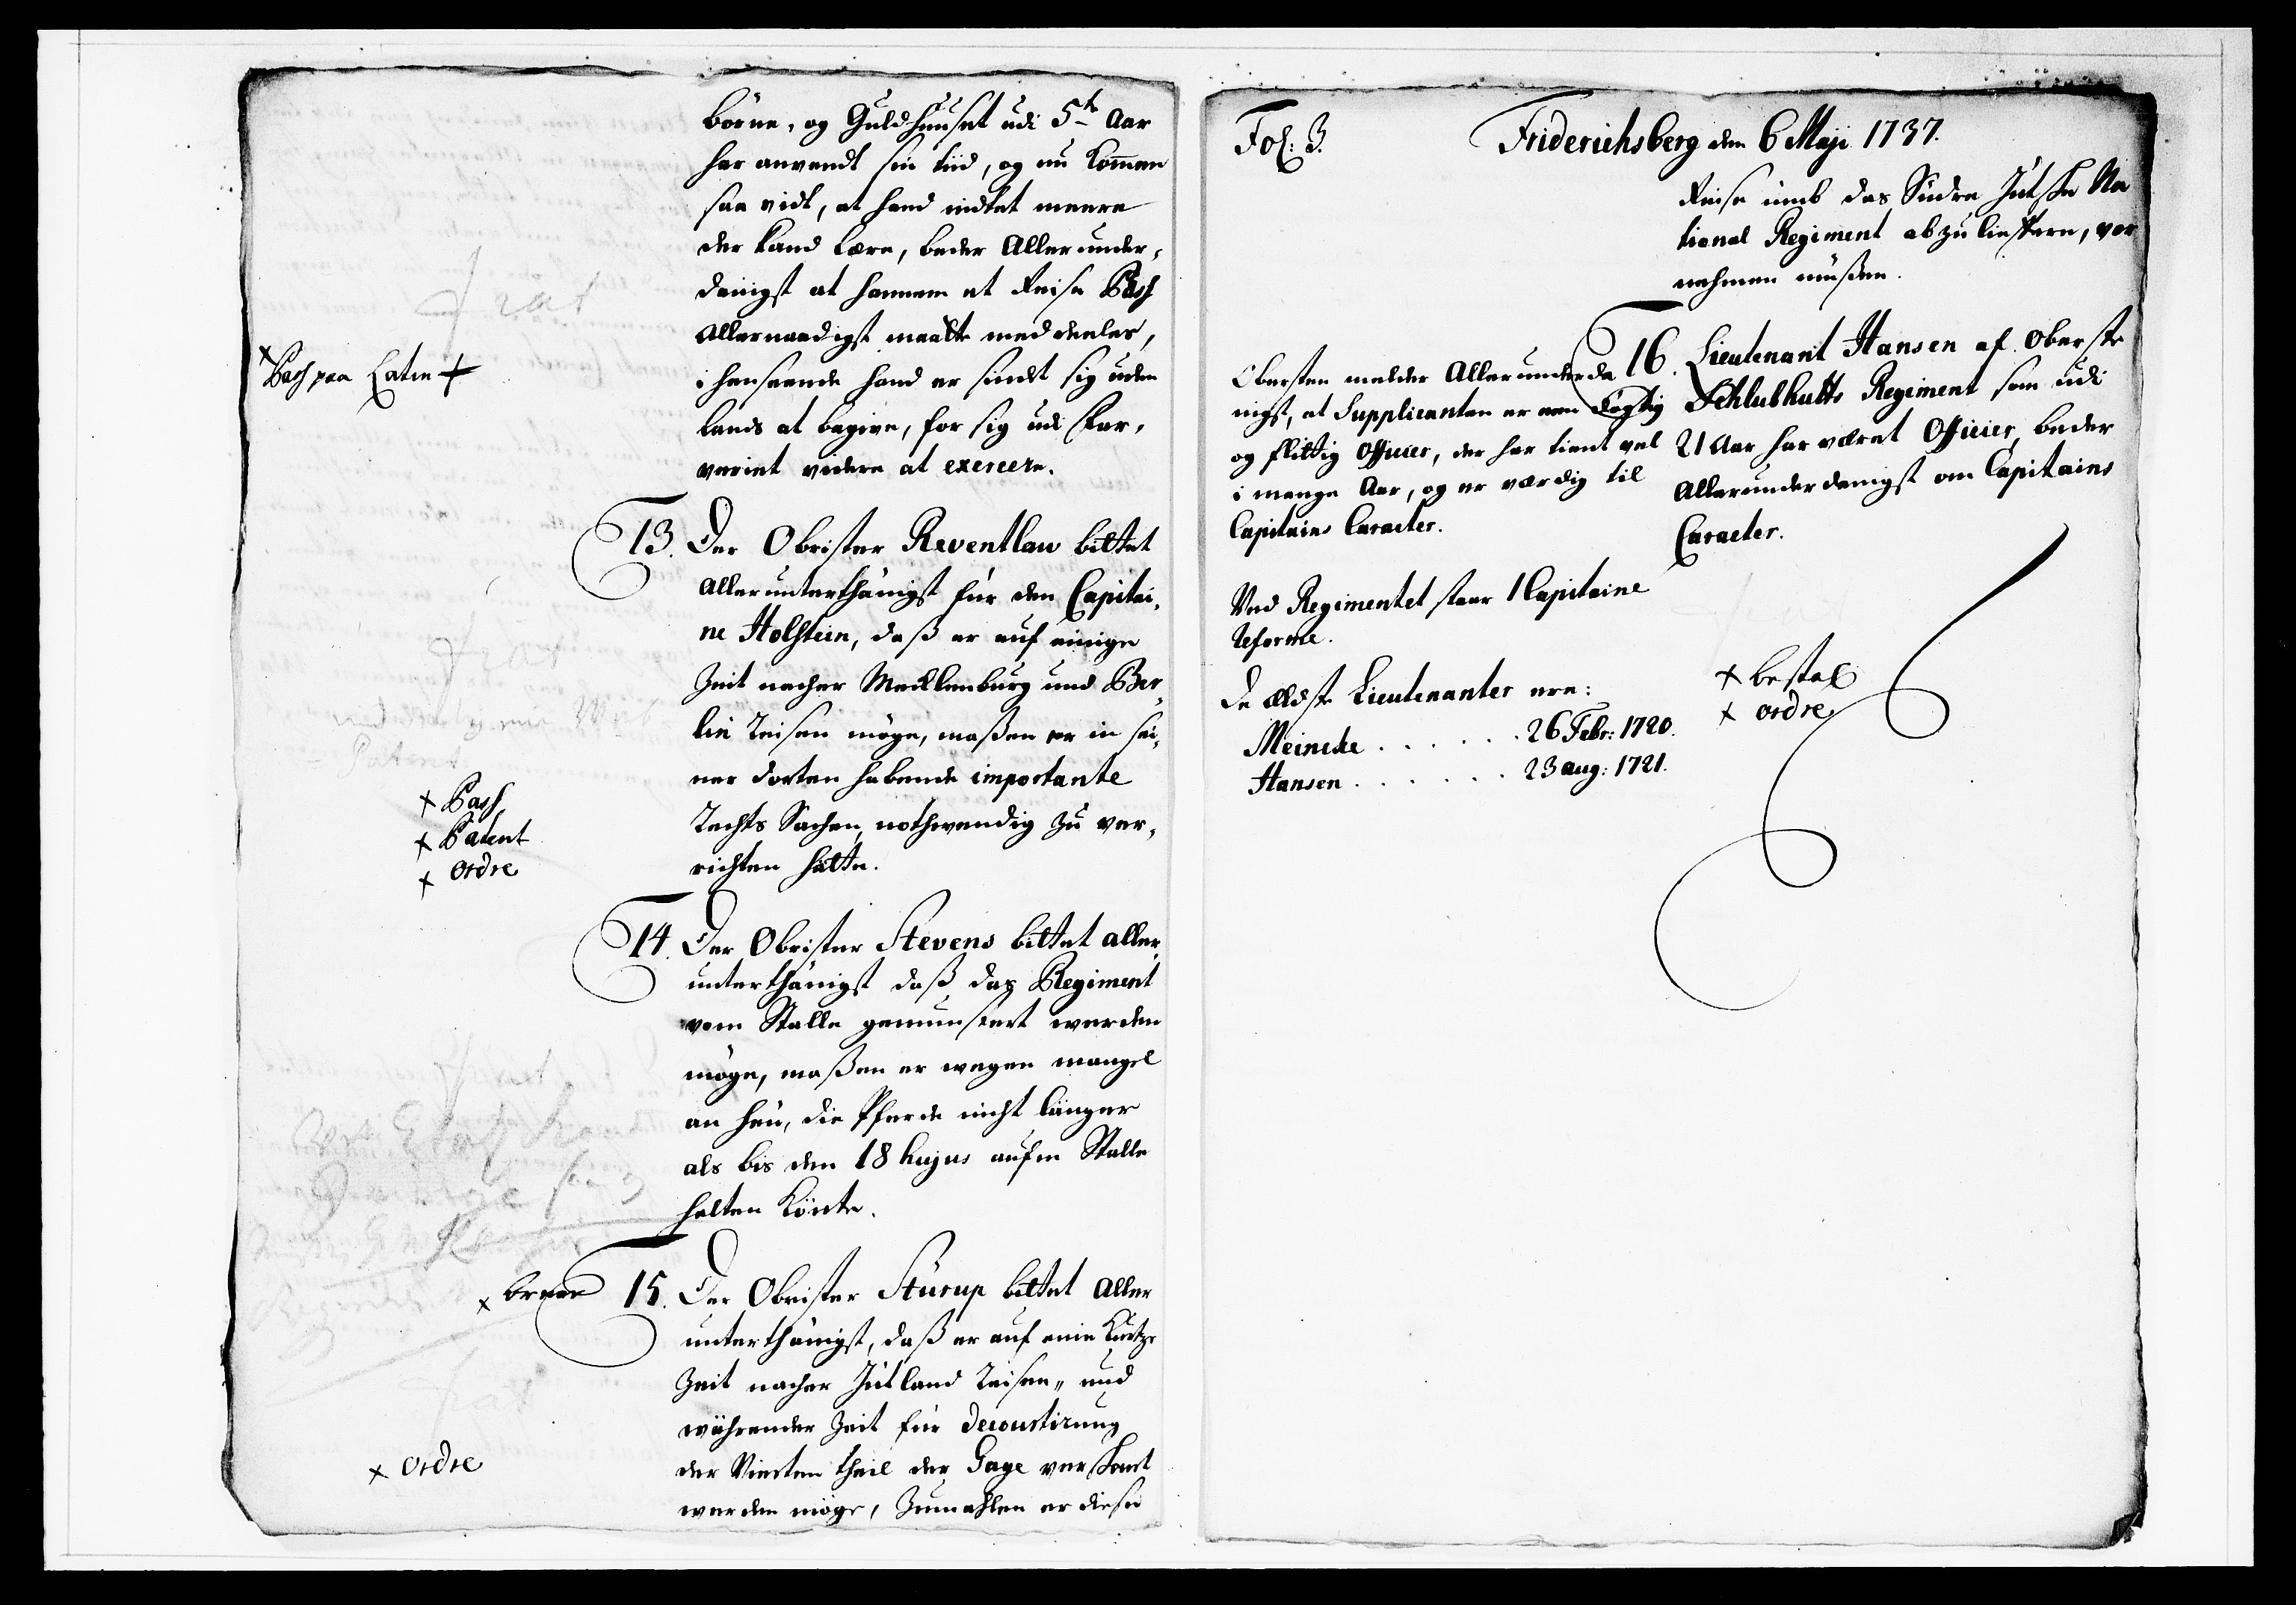 börne, og Guldhuuset udi 5te Aar
har anvendt sin tiid, og nu kommen
saa vidt, at hand indtet meere
der kand lære, beder Allerunder-
danigst at hannem et Reise Pass
Allernaadigst maatte meddeeles,
i henseende hand er sindet sig uden
lands at begive, for sig udi
videre at exercere.
× Pass paa Latin +
13. Der Obrister Reventlau bittet
Allerunterthänigst für den Capitai-
ne Holstein, daß er auf einige
Zeit nacher Mecklenburg und Ber-
lin Reisen möge, maßen er in sei-
ner dorten habende importante
Rechts Sachen, nothwendig zu ver-
richten hätte.
× Pass
× Patent
× ordre
14. Der Obrister Stevens bittet aller-
unterthänigst daß das Regiment
vom Stalle gemunstert werden
möge, maßen er wegen mangel
an heu, die Pferde nicht länger
als bis den 18 hujus aufm Stalle
halten könte.
15. Der Obrister Stürup bittet Aller
unterthänigst, daß er auf eine kurtze
Zeit nacher Jütland Reisen, und
währender Zeit für Decourtirung
der Vierten theil der Gage verschont
werden möge, Zumahlen er diese
×
× ordre
Fol: 3.
Friderichsberg den 6 Maji 1737.
Reise umb das Sudre Jütske Na
tional Regiment abzulieffern, vor
nehmen müßen.
16. Lieutenant Hansen af Oberste
Schlubhutts Regiment som udi
21 Aar har været Officier, beder
Allerunderdanigst om Capitains
Caracter.
Obersten melder Allerunderda
nigst, at Supplicanten er een dögtig
og flittig Officier, der har tient vel
i mange Aar, og er værdig til
Capitains Caracter.
Ved Regimentet staar 1 Capitaine
Reforme.
De ældste Lieutenanter ere:
Meincke . . . . . . 26 Febr: 1720.
Hansen . . . . . . 23 aug: 1721.
× bestal
× ordre